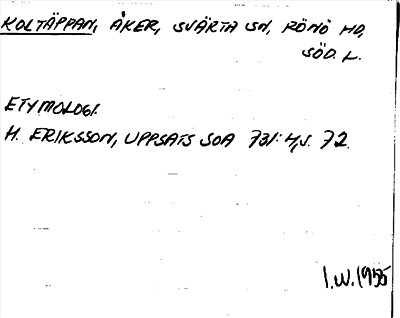 KOLTÄPPAN, ÅKER, SVÄRTA SN, RÖNÖ HD,
SÖD. L.
ETYMOLOGI.
H. ERIKSSON, UPPSATS SOA 731:4, S. 72.
I.W. 1955